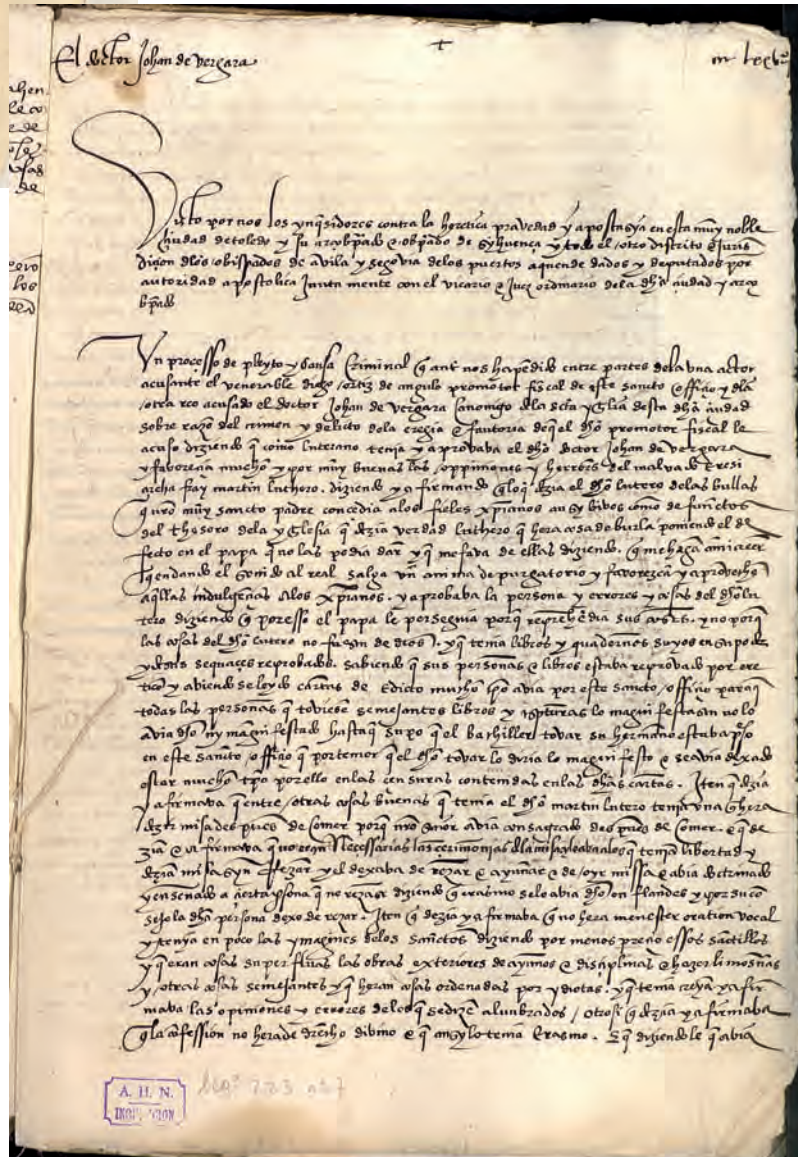 El doctor Johan de Vergara
Visto por nos los ynquisidores contra la heretica pravedad y apostasya en esta muy noble
çiudad de toledo y su arçobpado e obpado de syguença y todo el otro distrito e Juris
diçion dlos obispados de avila y segovia de los puertos aquende dados y deputados por
autoridad apostolica Junta mente con el vicario e Juez ordinario de la dha çiudad y arço
bpado
Vn processo de pleyto y causa Criminal q ante nos ha pendido entre partes dela una actor
acusante el venerable diego ortiz de angulo promotor fiscal de este sancto officio y dla
otra reo acusado el doctor Johan de Vergara Canonigo dla scta yglia desta dha çiudad
sobre razon del crimen y delicto dela eregia e fautoria de q el dho promotor fiscal le
acuso diziendo q como luterano tenia y aprovava el dho doctor Johan de Vergara
y favoreçia mucho y por muy buenas las oppiniones y herrores del malvado Eresi
archa fray martin luthero. diziendo y afirmando q lo q dezia el dho lutero de las bullas
q nro muy sancto padre concedia a los fieles xpianos ansy bivos como defunctos
del thesoro dela yglesia q dezia verdad luthero q hera cosa de burla poniendo el de
fecto en el papa q no las podia dar y q mofava de ellas diziendo. q me hagan a mi creer
q en dando el sonido al real salga vn anima de purgatorio y favorezcan y aprovechen
aqllas indulgençias a los xpianos. y aprobaba la persona y errores y cosas del dho lu
tero diziendo q por esso el papa le perseguia porq reprehendia sus cosas. y no porq
las cosas del dho lutero no fuesen de dios. y q tenia libros y quadernos suyos en su poder
y de mis sequaces reprobados. sabiendo q sus personas e libros estaba reprovado por ere
tico y abiendo se leydo cartas de Edicto mucho tpo avia por este sancto officio para q
todas las personas q toviesen semejantes libros y escpturas lo manifestasen no lo
avia dho ny manifestado hasta q supo q el bachiller tovar su hermano estaba preso
en este sancto officio q por temor q el dho tovar lo diria lo manifesto e se avia dexado
estar mucho tpo por ello en las censuras contenidas en las dhas cartas. Iten q dezia
y afirmava q entre otras cosas buenas q tenia el dho martin lutero tenia una q hera
dezir misa despues de comer porq nro señor avia consagrado despues de comer. e q de
zia e afirmava q no eran necessarias las cerimonias dla misa y loaba a los q tenian libertad y
dezian misa syn rezar y el dexava de rezar e ayunar e de oyr missa e abia doctrinado
y ensenado a çierta psona q no rezase diziendo q erasmo se lo abia dho en flandes y por su con
sejo la dha persona dexo de rezar. Iten q dezia y afirmaba q no hera menester oration vocal
y tenya en poco las ymagines delos sanctos diziendo por menos preçio essos sanctillos
y q eran cosas superfluas las obras exteriores de ayunos e disciplinas e hazer limosnas
y otras cosas semejantes y q heran cosas ordenadas por ydiotas. y q tenia creya y afir
mava las opiniones y errores delos q se dizen alunbrados / otrosi q dezia y afirmaba
q la confession no hera de drecho divino e q ansy lo tenia Erasmo. E q diziendole q abia
A. H. N.
INQUISICION
legº 223 nº 7